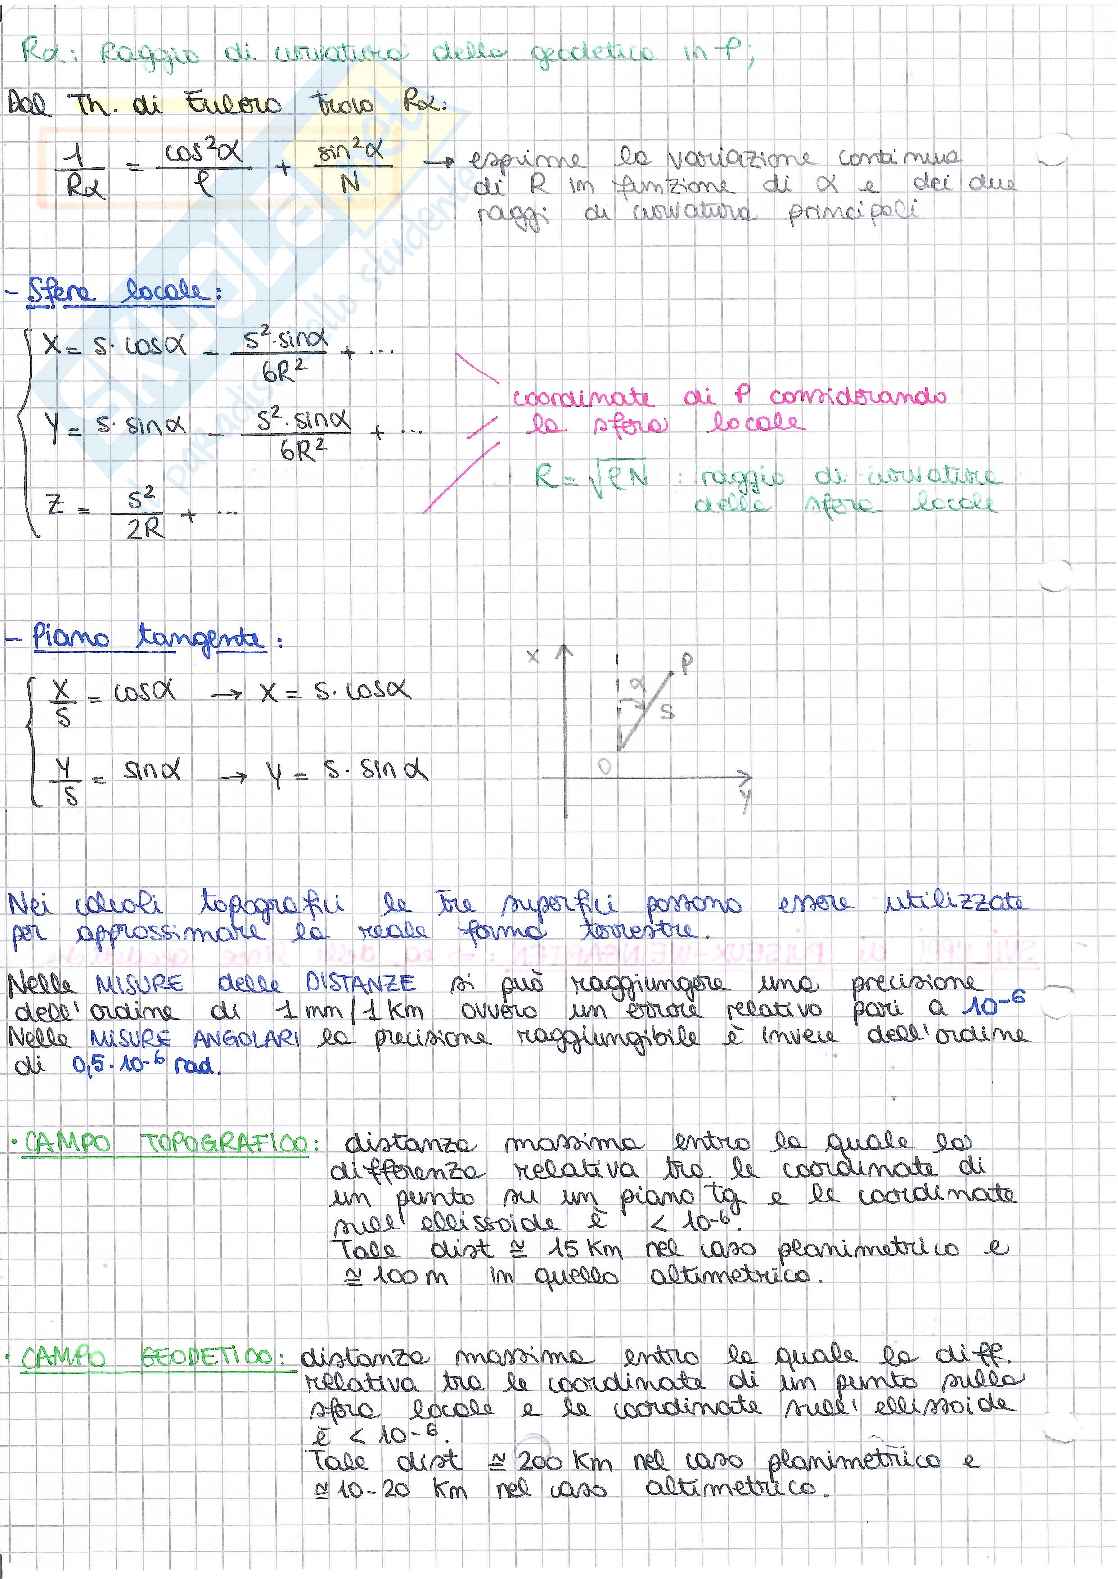 Rα: Raggio di curvatura della geodetica in P;
Dal Th. di Eulero trovo Rα:
1/Rα = cos²α/ρ + sin²α/N → esprime la variazione continua
di R in funzione di α e dei due
raggi di curvatura principali
- Sfera locale:
X = s · cosα - s²·sinα/6R² + ...
Y = s · sinα - s²·sinα/6R² + ...
Z = s²/2R + ...
coordinate di P considerando
la sfera locale
R = √ρN : raggio di curvatura
della sfera locale
- Piano tangente:
X/s = cosα → X = s · cosα
Y/s = sinα → Y = s · sinα
X
P
α
s
O
Y
Nei calcoli topografici le tre superfici possono essere utilizzate
per approssimare la reale forma terrestre.
Nelle MISURE delle DISTANZE si può raggiungere una precisione
dell'ordine di 1mm/1Km ovvero un errore relativo pari a 10⁻⁶
Nelle MISURE ANGOLARI la precisione raggiungibile è invece dell'ordine
di 0,5·10⁻⁶ rad.
· CAMPO TOPOGRAFICO: distanza massima entro la quale la
differenza relativa tra le coordinate di
un punto su un piano tg e le coordinate
sull'ellissoide è < 10⁻⁶.
Tale dist ≅ 15 Km nel caso planimetrico e
≅ 100m in quello altimetrico.
· CAMPO GEODETICO: distanza massima entro la quale la diff.
relativa tra le coordinate di un punto sulla
sfera locale e le coordinate sull'ellissoide
è < 10⁻⁶.
Tale dist ≅ 200 Km nel caso planimetrico e
≅ 10-20 Km nel caso altimetrico.